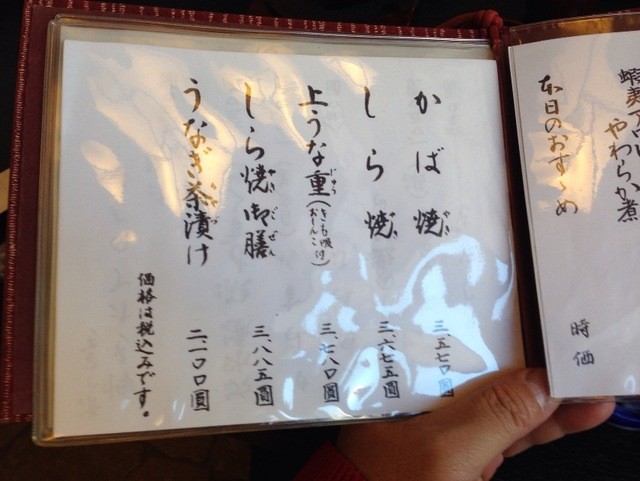 かば焼 三、五七〇圓
しら焼 三、六七五圓
上うな重(きも吸付 おしんこ) 三、七八〇圓
しら焼御膳 三、八八五圓
うなぎ茶漬け 二、一〇〇圓
価格は税込みです。
やわらか煮
本日のおすゝめ 時価